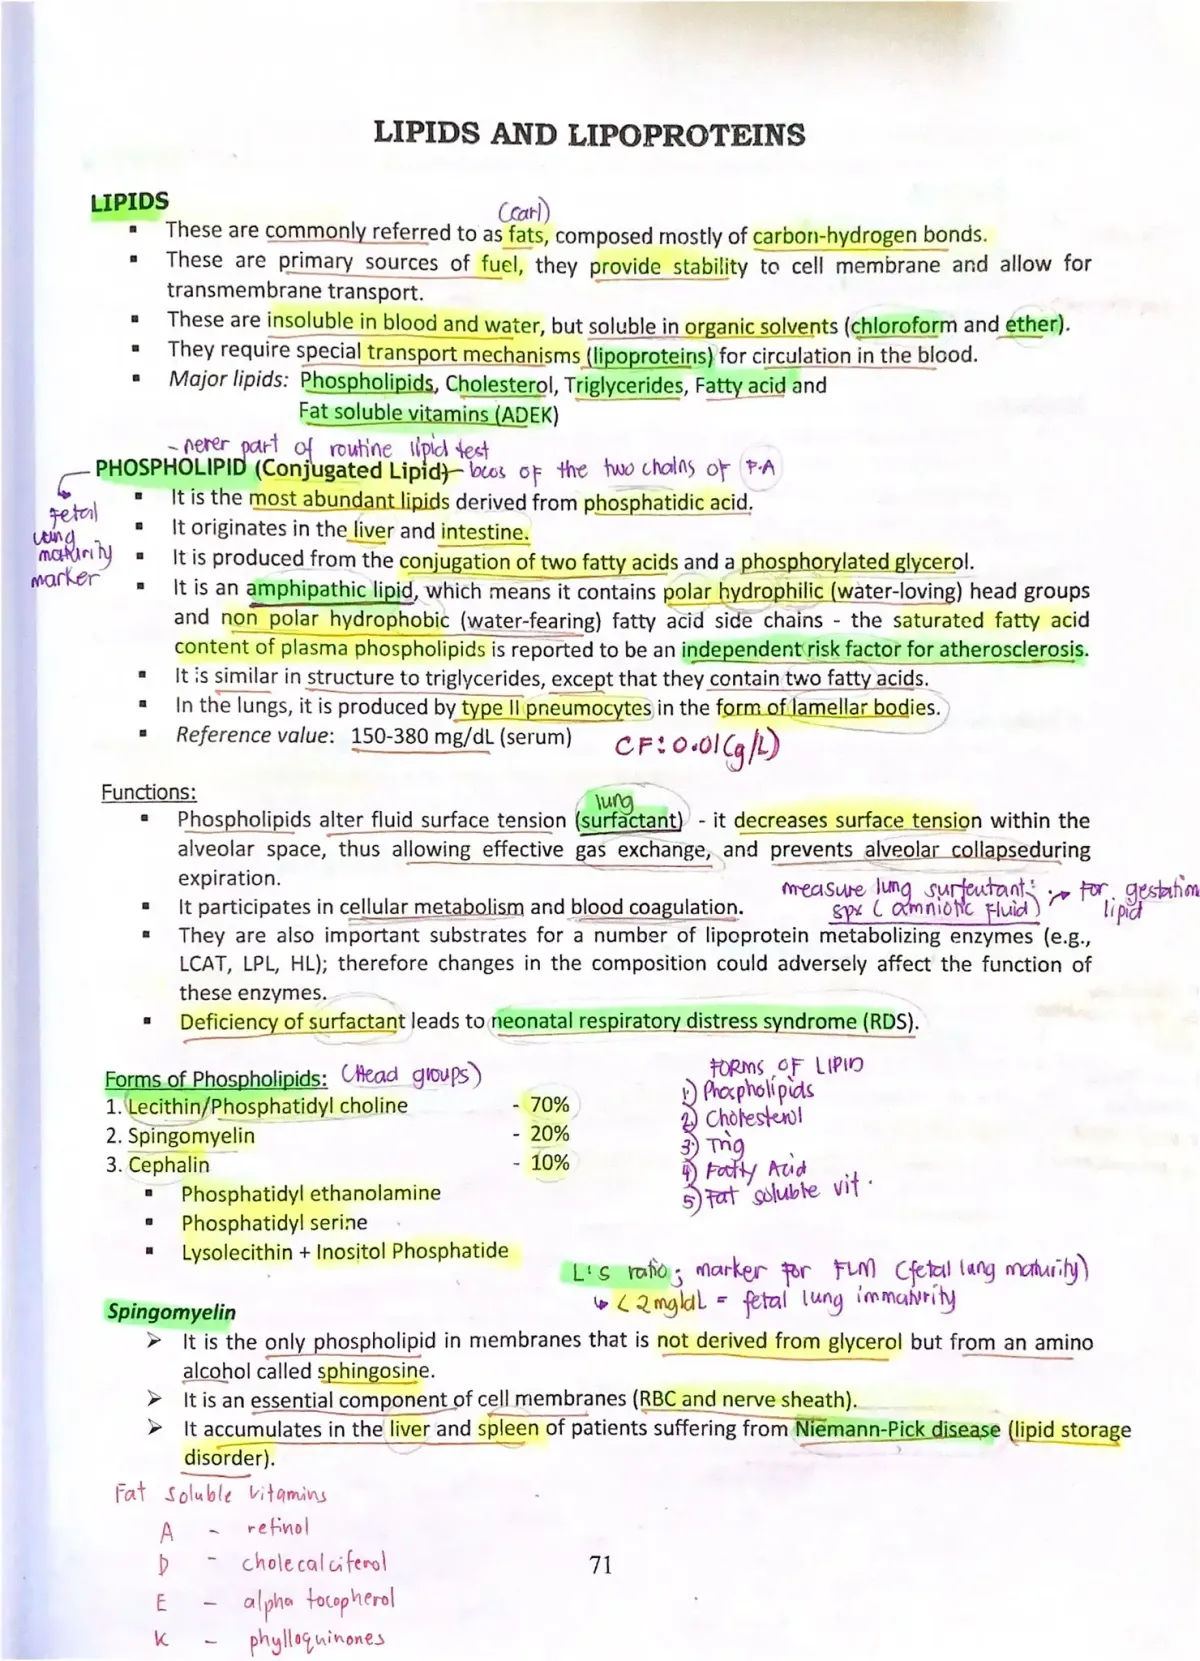 LIPIDS AND LIPOPROTEINS
LIPIDS
▪ These are commonly referred to as fats, composed mostly of carbon-hydrogen bonds.
▪ These are primary sources of fuel, they provide stability to cell membrane and allow for
transmembrane transport.
▪ These are insoluble in blood and water, but soluble in organic solvents (chloroform and ether).
▪ They require special transport mechanisms (lipoproteins) for circulation in the blood.
▪ Major lipids: Phospholipids, Cholesterol, Triglycerides, Fatty acid and
Fat soluble vitamins (ADEK)
- never part of routine lipid test
PHOSPHOLIPID (Conjugated Lipid) bcos of the two chains of F.A
fetal
lung
maturity
marker
▪ It is the most abundant lipids derived from phosphatidic acid.
▪ It originates in the liver and intestine.
▪ It is produced from the conjugation of two fatty acids and a phosphorylated glycerol.
▪ It is an amphipathic lipid, which means it contains polar hydrophilic (water-loving) head groups
and non polar hydrophobic (water-fearing) fatty acid side chains - the saturated fatty acid
content of plasma phospholipids is reported to be an independent risk factor for atherosclerosis.
▪ It is similar in structure to triglycerides, except that they contain two fatty acids.
▪ In the lungs, it is produced by type II pneumocytes in the form of lamellar bodies.
▪ Reference value: 150-380 mg/dL (serum) CF: 0.01 (g/L)
Functions:
lung
▪ Phospholipids alter fluid surface tension (surfactant) - it decreases surface tension within the
alveolar space, thus allowing effective gas exchange, and prevents alveolar collapseduring
expiration.
measure lung surfeutant: for gestation
▪ It participates in cellular metabolism and blood coagulation. spx (amniotic fluid) lipid
▪ They are also important substrates for a number of lipoprotein metabolizing enzymes (e.g.,
LCAT, LPL, HL); therefore changes in the composition could adversely affect the function of
these enzymes.
▪ Deficiency of surfactant leads to neonatal respiratory distress syndrome (RDS).
Forms of Phospholipids: (Head groups)
1. Lecithin/Phosphatidyl choline - 70%
2. Spingomyelin - 20%
3. Cephalin - 10%
▪ Phosphatidyl ethanolamine
▪ Phosphatidyl serine
▪ Lysolecithin + Inositol Phosphatide
FORMS OF LIPID
1) Phospholipids
2) Cholesterol
3) Trig
4) Fatty Acid
5) Fat soluble vit.
L:S ratio; marker for FLM (fetal lung maturity)
↳ < 2 mg/dL = fetal lung immaturity
Spingomyelin
➢ It is the only phospholipid in membranes that is not derived from glycerol but from an amino
alcohol called sphingosine.
➢ It is an essential component of cell membranes (RBC and nerve sheath).
➢ It accumulates in the liver and spleen of patients suffering from Niemann-Pick disease (lipid storage
disorder).
Fat soluble vitamins
A - retinol
D - cholecalciferol
E - alpha tocopherol
K - phylloquinones
71